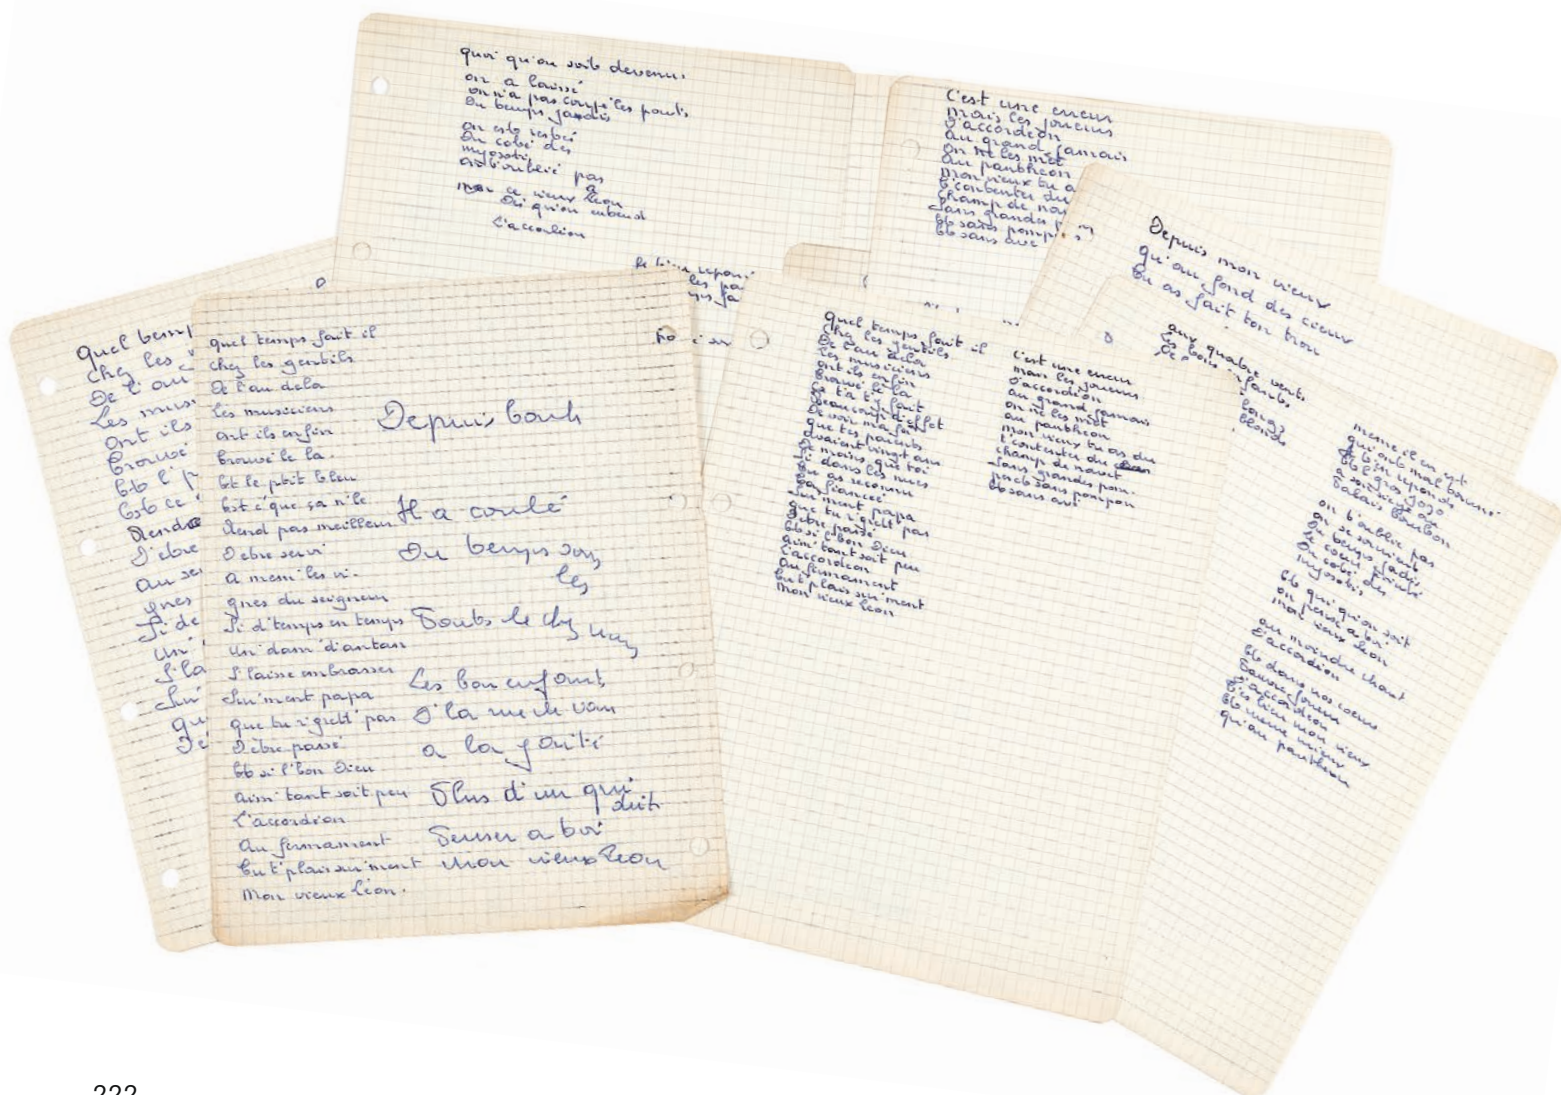 quoi qu'on soit devenu
on a laissé
on n'a pas coupé les ponts
Du temps jadis
on est resté
Du coté des
myosotis
on t'oublie pas
mon vieux Léon
Dès qu'on entend
L'accordéon
C'est une erreur
mais les joueurs
D'accordéon
au grand jamais
On ne les met
Au panthéon
mon vieux tu a
t'contenter du
champ de nav
sans grandes p
et sans pomp
et sans avé
Depuis mon vieux
qu'au fond des cieux
tu as fait ton trou
aux quatre vents
les bons enfants
Quel temp
chez les
De l'au
Les mus
ont ils
trouvé
et l'p
est ce
Rends
D'être
au se
gnes
si de
un
s'la
sur
qu
D'ê
quel temps fait il
chez les gentils
De l'au dela
les musiciens
ont ils enfin
trouvé le la.
et le ptit bleu
est c'que ça n'le
Rend pas meilleur
D'être servi
a mem' les vi-
gnes du seigneur
si d'temps en temps
un' dam' d'antan
s'laisse embrasser
sur'ment papa
que tu r'grett' pas
D'être passé
et si l'bon Dieu
aim' tant soit peu
l'accordéon
Au firmament
tu t'plais sur'ment
mon vieux Léon.
Depuis tout
Il a coulé
Du temps sous
les
Ponts de chez nous
Les bon enfants
D'la rue de van
a la gaité
Plus d'un qui
doit
Penser a toi
mon vieux Léon
quel temps fait il
chez les gentils
De l'au dela
les musiciens
ont ils enfin
trouvé le la
ça t'a t'i fait
beaucoup d'effet
De voir ma foi
que tes parents
avaient vingt ans
De moins que toi
si dans les nues
tu as reconnu
ta fiancée
sur'ment papa
que tu r'grett' pas
D'être passé
et si l'bon Dieu
aim' tant soit peu
l'accordéon
Au firmament
tu t'plais sur'ment
mon vieux Léon
c'est une erreur
mais les joueurs
D'accordéon
au grand jamais
on ne les met
au panthéon
mon vieux tu as du
t'contenter du
champ de navet
sans grandes pom-
p's et sans pompon
et sans avé
meme il en est
qui ont mal tourné
a son siège au
Palais Bourbon
on t'oublie pas
on se souvient
Du temps jadis
Du coté des
myosotis
et qui qu'on soit
on pense a toi
mon vieux Léon
au moindre chant
D'accordéon
et dans nos coeurs
Pauvre joueur
D'accordéon
t'es bien mon vieux
et meme mieux
qu'au panthéon
222